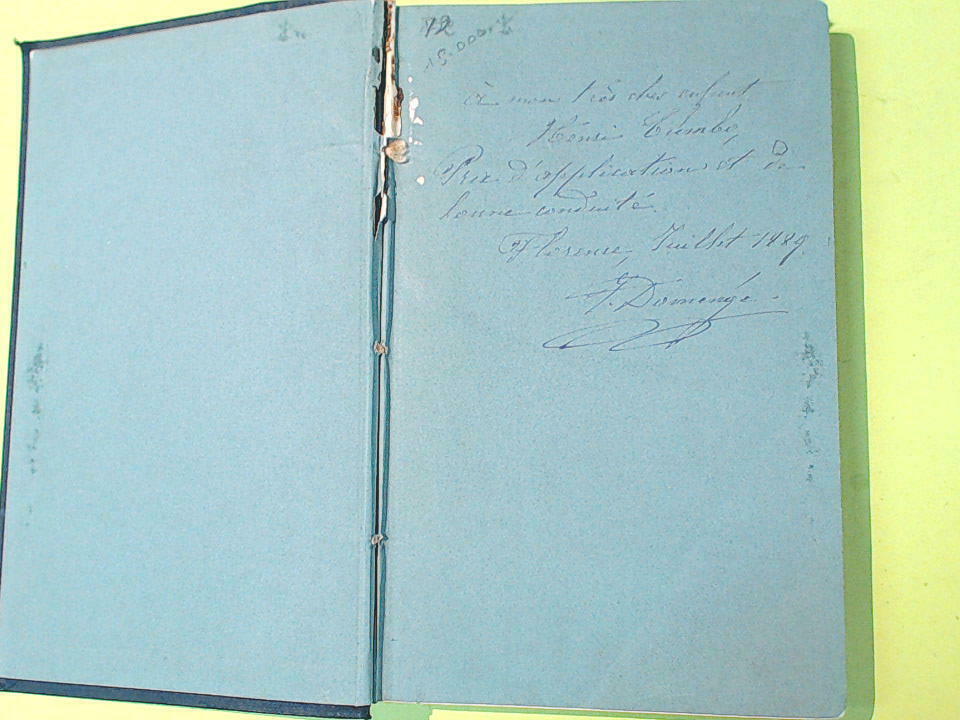 12
15.000
à mon très cher enfant
Henri
Prix d'application et de
bonne conduite.
Florence, Juillet 1889
F. Domengé